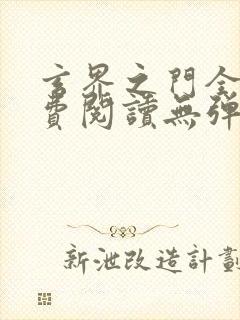 玄界之門全
費閱讀無彈
新泄改造計劃